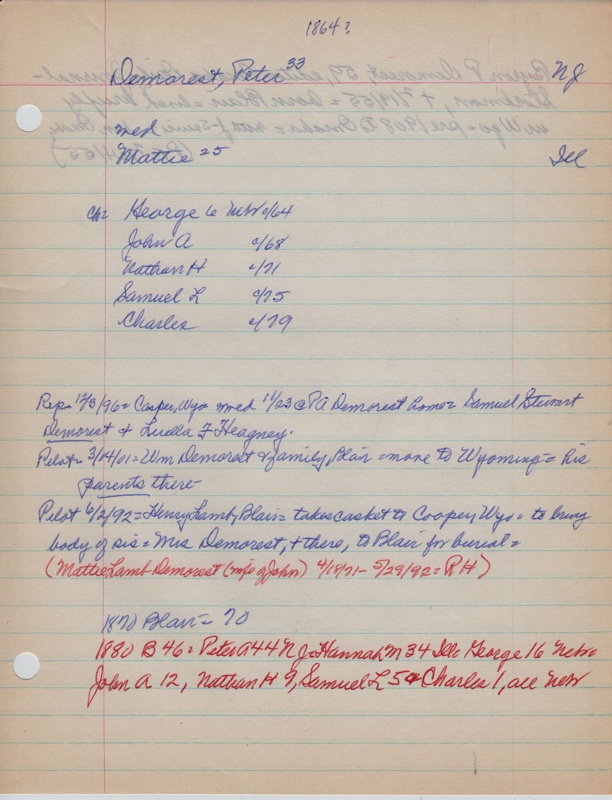 1864?
Demorest, Peter 33 NJ
med
Mattie 25 Ill
Ch= George 6 Neb c/64
John A c/68
Nathan H c/71
Samuel L c/75
Charles c/79
Rep= 12/3/96= Casper, Wyo= med 11/23 @ PA Demorest home= Samuel Stewart
Demorest + Luella F Heagney.
Pilot= 3/14/01= Wm Demorest & family, Blair =move to Wyoming= his
parents there-
Pilot 6/2/92= Henry Lamb, Blair= takes casket to Cooper, Wyo= to bring
body of sis= Mrs Demorest, + there, to Blair for burial=
(Mattie Lamb Demorest (wife of John) 4/18/71- 5/29/92= RH)
1870 Blair= 70
1880 B 46= Peter A 44 NJ= Hannah M 34 Ill= George 16 Neb=
John A 12, Nathan H 9, Samuel L 5 & Charles 1, all Neb